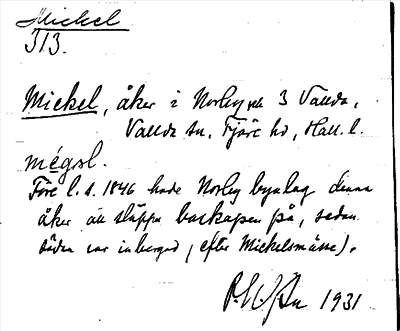 Mickel
313.
Mickel, åker i Norby nr 3 Vallda,
Vallda sn, Fjäre hd, Hall. l.
mégsl.
Före l. s. 1846 hade Norby byalag denna
åker att släppa boskapen på, sedan
säden var inbergad, (efter Mickelsmässa).
1931